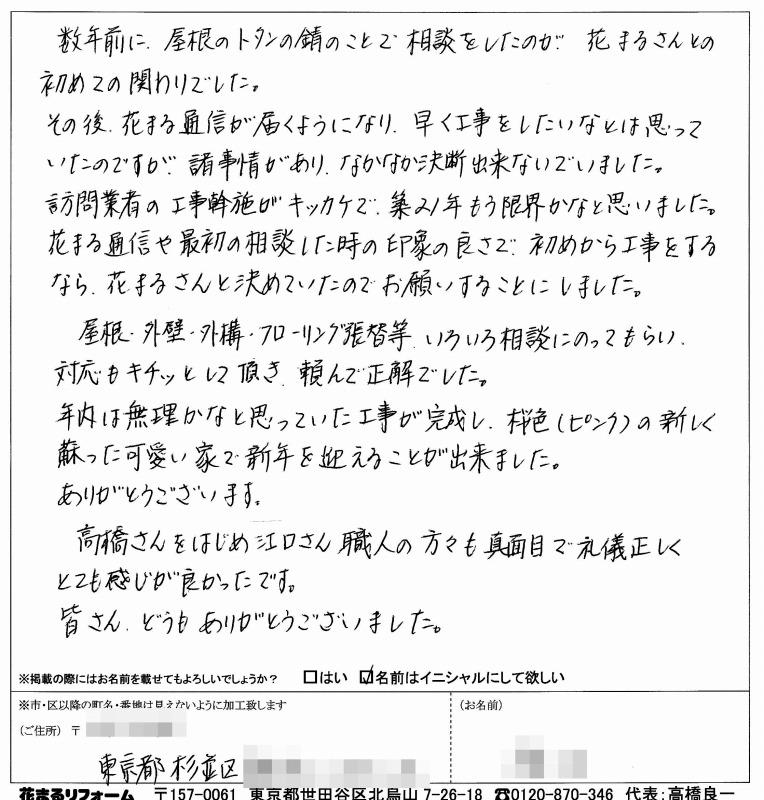 数年前に、屋根のトタンの錆のことで相談をしたのが 花まるさんとの
初めての関わりでした。
その後、花まる通信が届くようになり、早く工事をしたいなとは思って
いたのですが、諸事情があり、なかなか決断出来ないでいました。
訪問業者の工事幹施がキッカケで、築21年もう限界かなと思いました。
花まる通信や最初の相談した時の印象の良さで、初めから工事をする
なら、花まるさんと決めていたのでお願いすることにしました。
屋根・外壁・外構・フローリング張替等、いろいろ相談にのってもらい、
対応もキチッとして頂き、頼んで正解でした。
年内は無理かなと思っていた工事が完成し、桜色(ピンク)の新しく
蘇った可愛い家で新年を迎えることが出来ました。
ありがとうございます。
高橋さんをはじめ江口さん職人の方々も真面目で礼儀正しく
とても感じが良かったです。
皆さん、どうもありがとうございました。
※掲載の際にはお名前を載せてもよろしいでしょうか? □はい ☑名前はイニシャルにして欲しい
※市・区以降の町名・番地は見えないように加工致します
(お名前)
(ご住所) 〒
東京都杉並区
花まるリフォーム 〒157-0061 東京都世田谷区北烏山7-26-18 ☎0120-870-346 代表:高橋良一